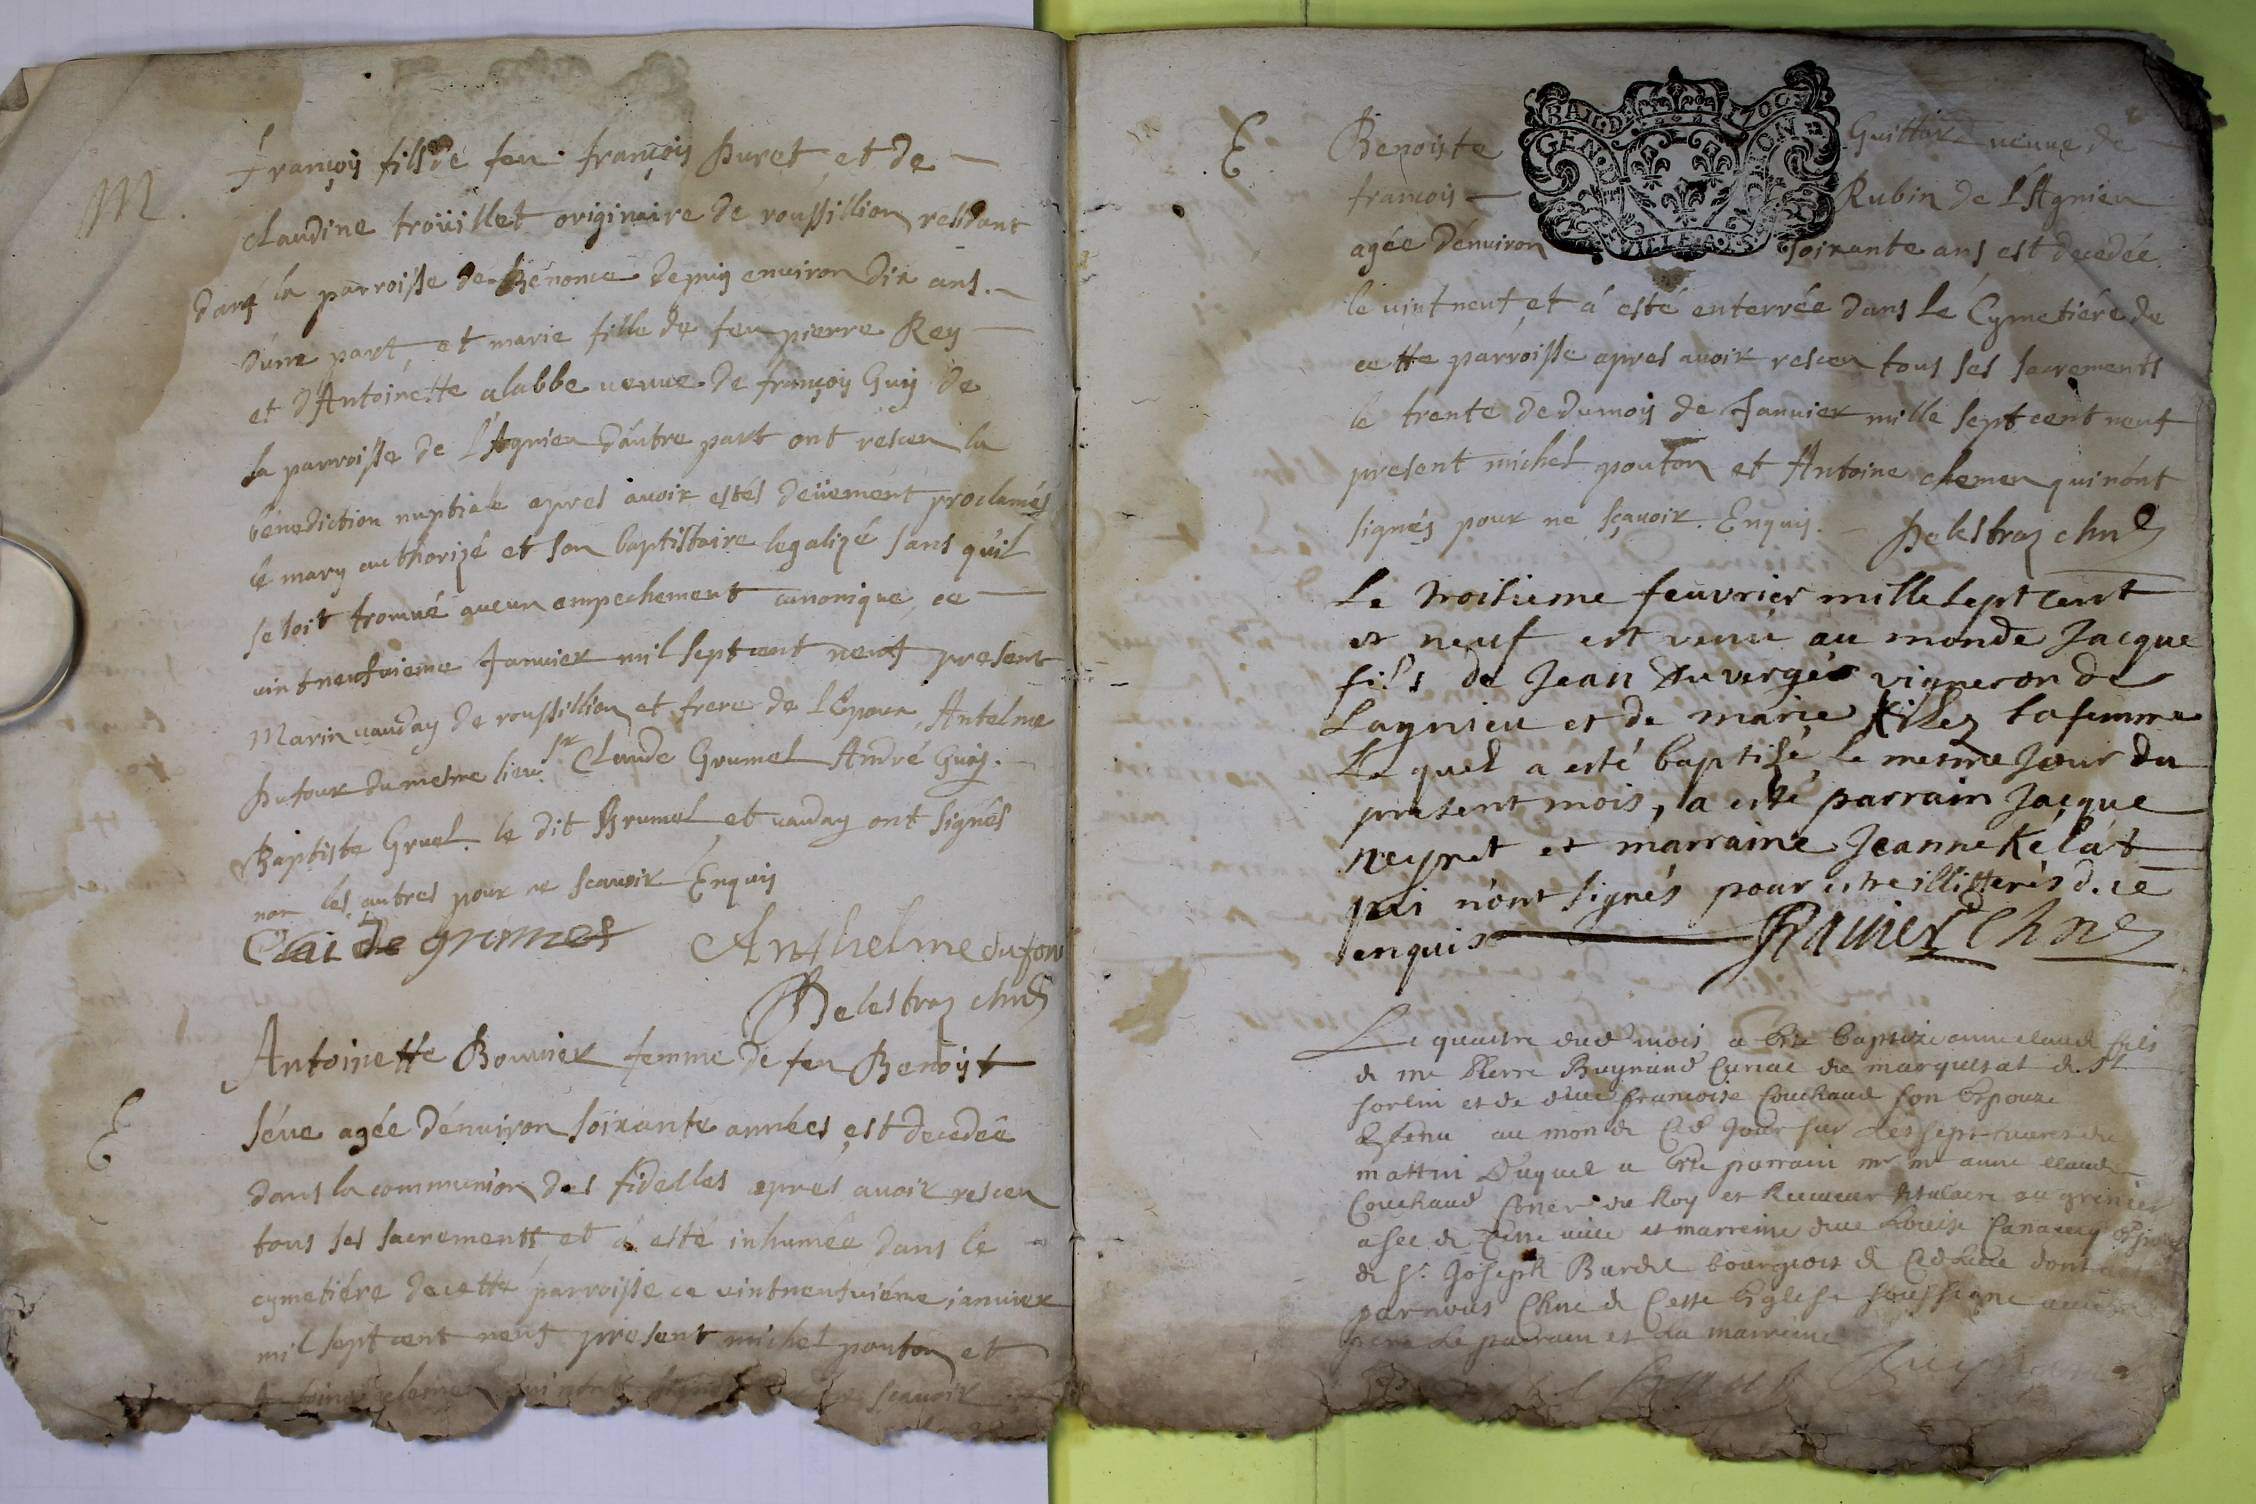 M.
françois fils de feu françois puret et de
claudine troüillet originaire de roussillion residant
dans la parroisse de Benonce depuis environ dix ans
d'une part, et marie fille de feu pierre Rey
et d'Antoinette alabbe veuve de françois Guy de
la parroisse de l'Agnieu d'autre part ont resceu la
bénediction nuptiale apres avoir estés deüement proclamés
le mary authorizé et son baptistaire legalizé sans qu'il
se soit trouvé aucun empechement canonique, ce
vintneufvieme Janvier mil sept cent neuf present
Marin vauday de roussillion et frere de l'Epoux, Antelme
Dufour du mesme lieu. sr Claude Grumel André Guy.
Baptiste Gruel. le dit Brumel et vauday ont signés
non les autres pour ne scavoir Enquis
de grumel Anthelme dufour
Belestraz chne
E
Antoinette Bouvier femme de feu Benoist
séve agée d'environ soixante années, est decedée
dans la communion des fidelles apres avoir resceu
tous ses sacrements et a esté inhumée dans le
cymetiére de cette parroisse ce vintneufviéme janvier
mil sept cent neuf present michel pouton et
scavoir
E
Benoiste Guittar veuve de
francois Rubin de l'Agnieu
GEN
agée d'environ soixante ans est decedée
le vintneuf et a esté enterrée dans le Cymetiére de
cette parroisse apres avoir resceu tous ses sacrements
le trente de dumois de Janvier mille sept cent neuf
present michel pouton et Antoine clemen qui n'ont
signés pour ne sçavoir. Enquis. Belestraz chne
Le troisieme feuvrier mille sept cent
et neuf est venu au monde Jacque
fils de Jean Duverger vigneron de
Lagnieu et de marie sa femme
Le quel a esté baptisé le mesme Jour du
present mois, a esté parrain Jacque
neyret et marraine Jeanne Kélat
qui n'ont signés pour estre illitterés de ce
enquis Ravier Chne
Le quattre dud mois a este baptize anne claud fils
de me Pierre Buynand Curial du marquisat de St
sorlin et de dlle francoise Couchaud son Espouze
venu au monde Ced Jour sur les sept heures du
mattin Duquel a este parrain mr me anne claude
Couchaud Coner du Roy et Receveur au grenier
a sel de Cette ville et marreine dlle Louise
de sr Joseph Burdel bourgeois de Ced lieu dont
par nous Chne de Cette Eglise soussigne
pere Le parrain et La marreine